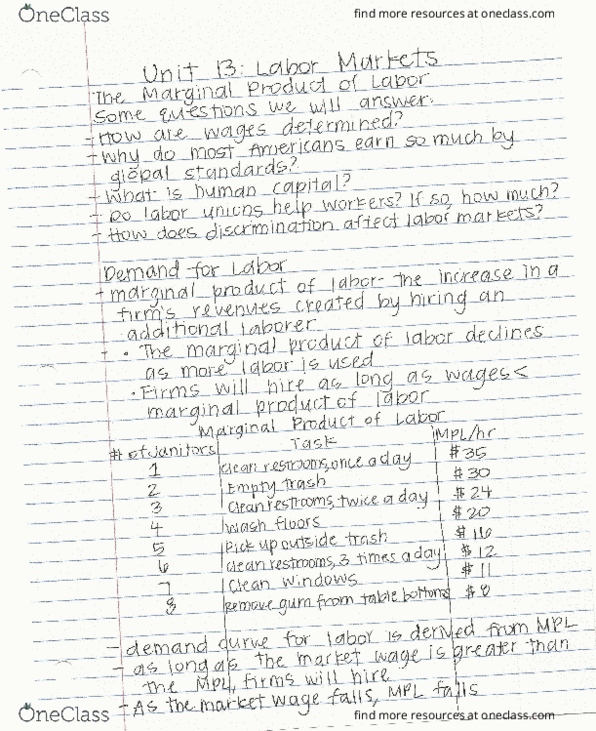 OneClass find more resources at oneclass.com
Unit 13: Labor Markets
The Marginal Product of Labor
Some questions we will answer.
- How are wages determined?
- Why do most Americans earn so much by
global standards?
- What is human capital?
- Do labor unions help workers? If so, how much?
- How does discrimination affect labor markets?
Demand for Labor
- marginal product of labor- the increase in a
firm's revenues created by hiring an
additional laborer
- • The marginal product of labor declines
as more labor is used
• Firms will hire as long as wages <
marginal product of labor
Marginal Product of Labor
# of Janitors Task MPL/hr
1 clean restrooms, once a day $35
2 Empty trash $30
3 Clean restrooms, twice a day $24
4 Wash floors $20
5 Pick up outside trash $16
6 Clean restrooms, 3 times a day $12
7 Clean windows $11
8 Remove gum from table bottoms $8
- demand curve for labor is derived from MPL
- as long as the market wage is greater than
the MPL, firms will hire
- As the market wage falls, MPL falls
OneClass find more resources at oneclass.com